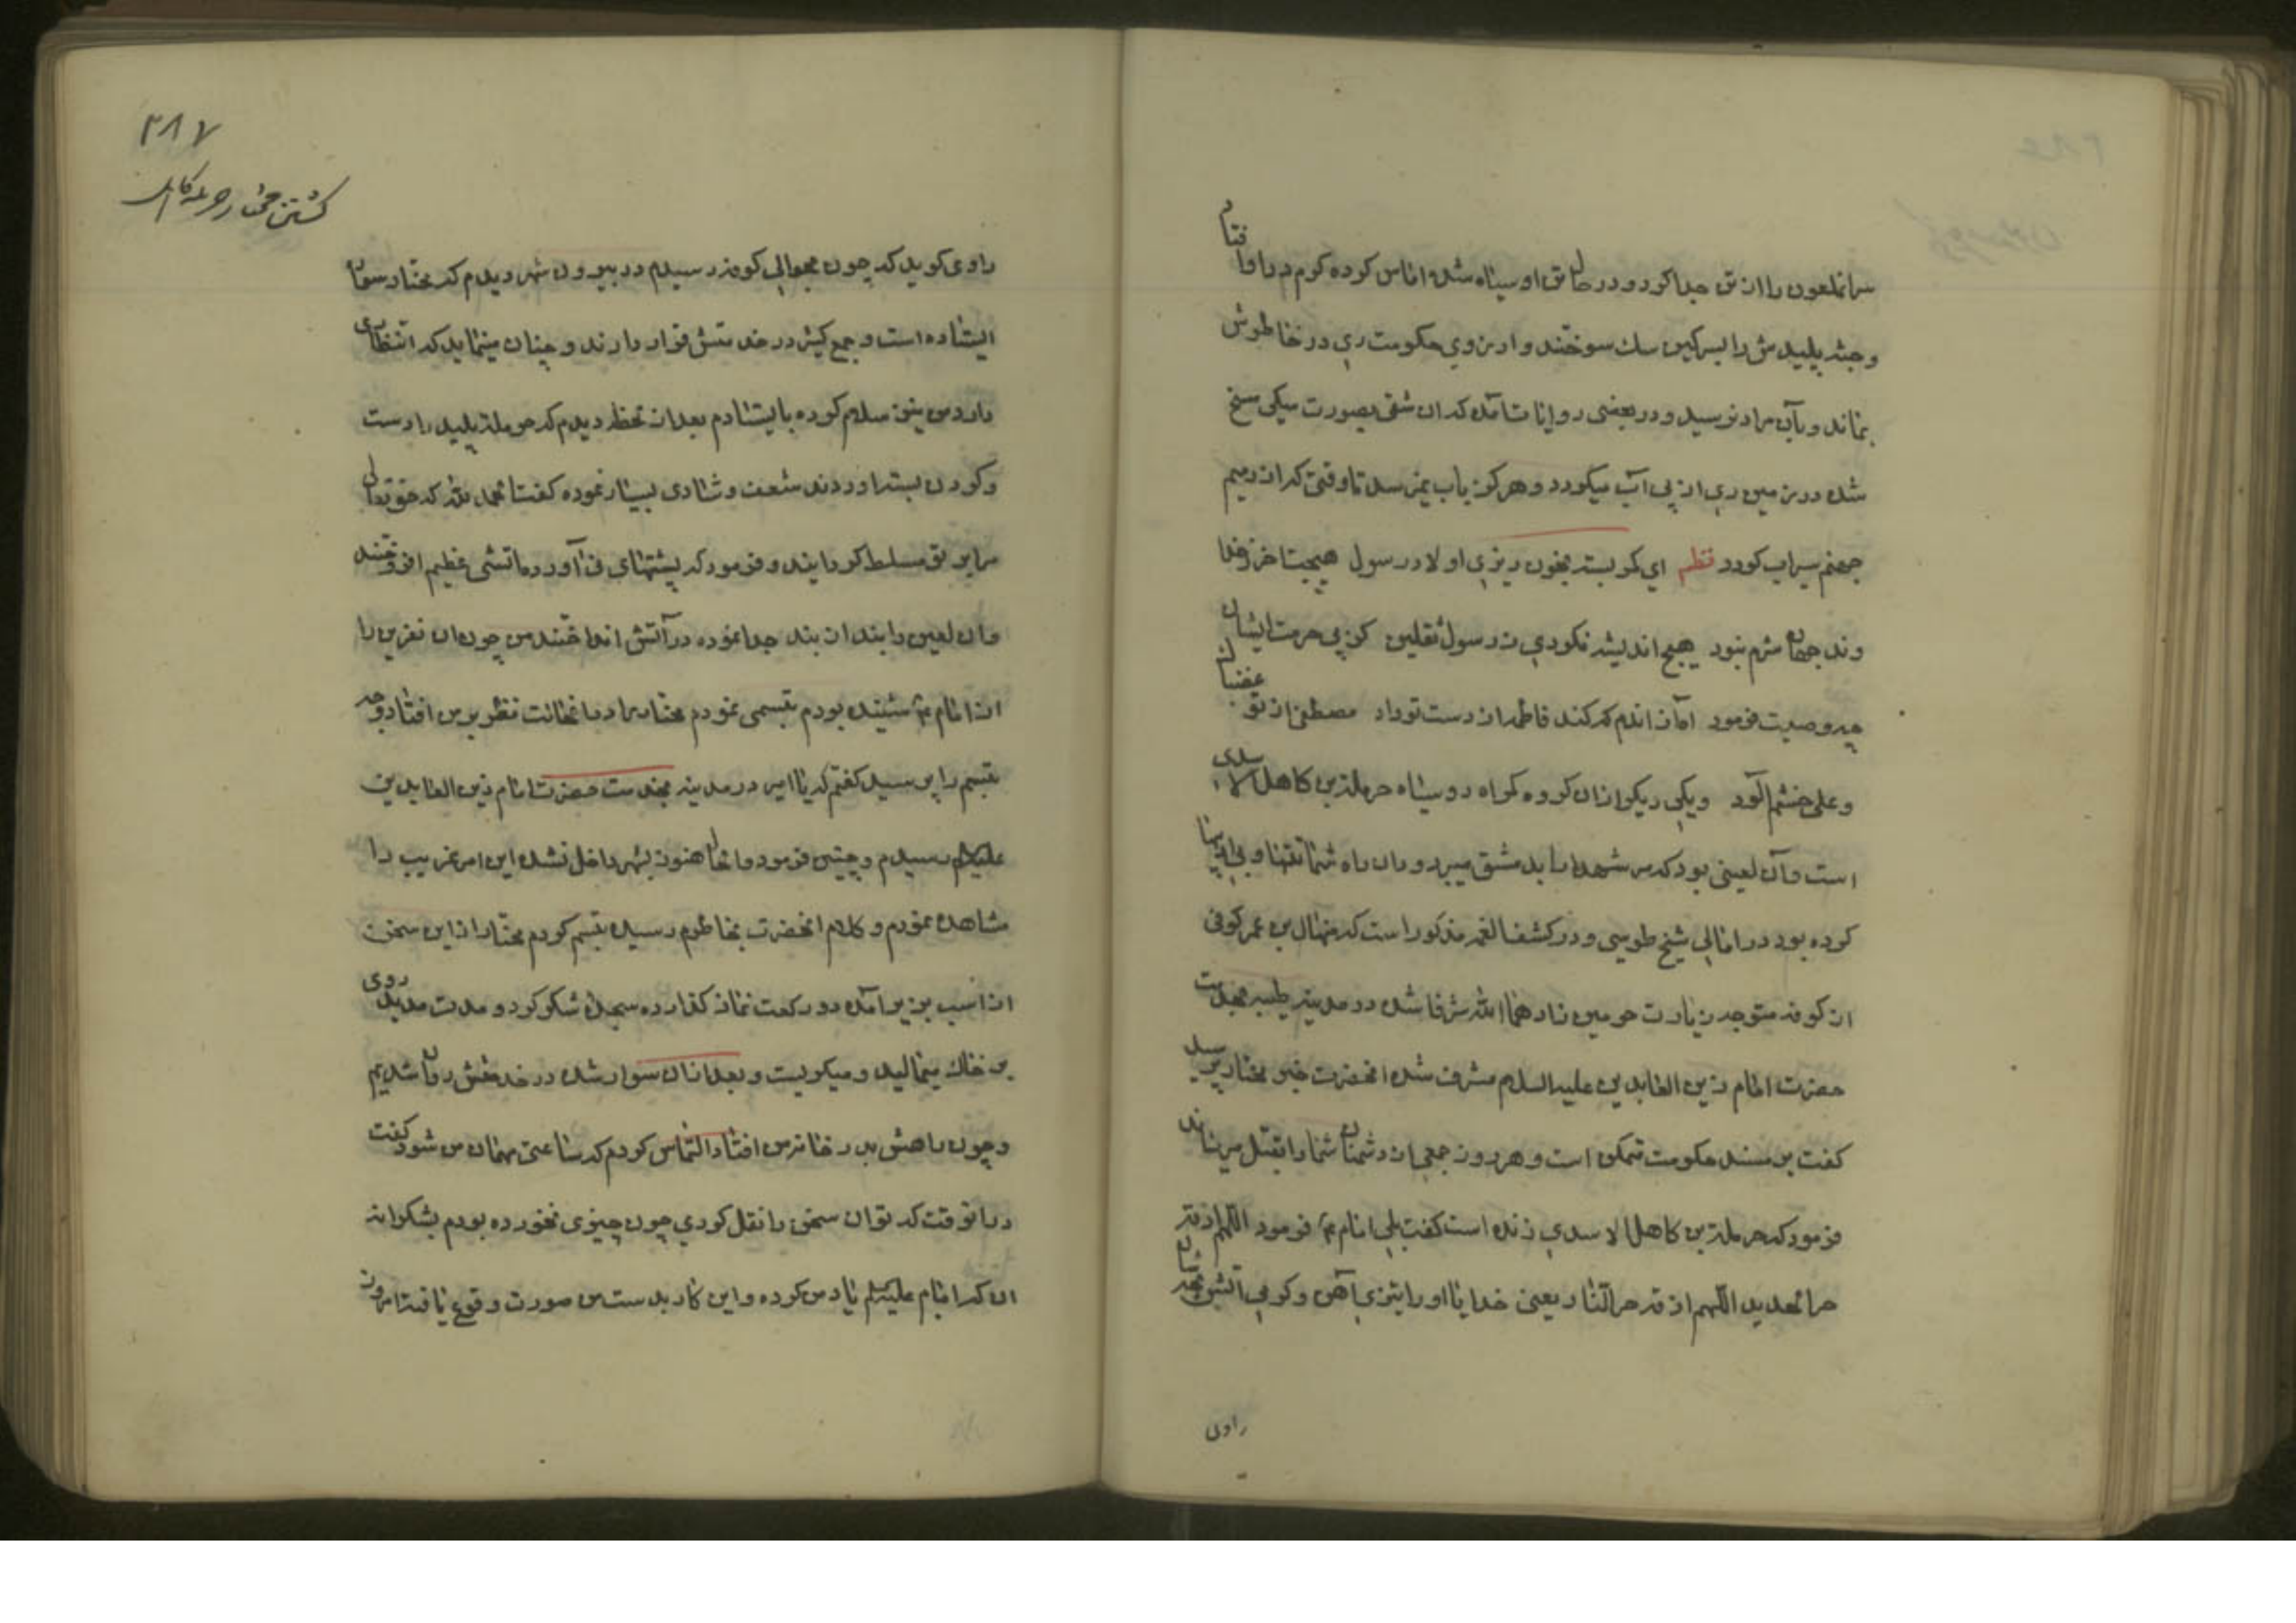 سر انملعون را از تن جدا کرد و در حال تن او سیاه شده اماس کرده کرم در او افتاد
و جثه پلیدش را بسرکین سک سوختند و ارزوی حکومت ری در خاطرش
بماند و بآن مراد نرسید و در بعضی روایات آمده که ان شقی بصورت سکی مسخ
شده در زمین ری از پی آب میکردد و هرکز باب نمیرسد تا وقتی که از حمیم
جهنم سیراب کردد نظم ای کمر بسته بخون ریزی اولاد رسول هیچت از
هیچ اندیشه نکردی ز رسول ثقلین کز پی حرمت ایشان
چه وصیت فرمود آه از اندم که کند فاطمه از دست تو داد مصطفی از تو غضبناک
و علی خشم آلود و یکی دیکر از ان کروه کمراه رو سیاه حرملة بن کاهل الاسدی
است و آن لعینی بود که سر شهدا را بدمشق میبرد و در ان راه شماتتها و بی ادبیها
کرده بود در امالی شیخ طوسی و در کشف الغمه مذکور است که منهال بن عمر کوفی
از کوفه متوجه زیارت حرمین زادهما الله شرفا شده در مدینه طیبه بخدمت
حضرت امام زین العابدین علیه السلام مشرف شده انحضرت خبر مختار پرسید
کفت بر مسند حکومت متمکن است و هر روز جمعی از دشمنان شما را بقتل میرساند
فرمود که حرملة بن کاهل الاسدی زنده است کفت بلی امام ع فرمود اللهم اذقه
حر الحدید اللهم اذقه حر النار یعنی خدایا او را بتیزی آهن و کرمی آتش بچشان
راوی
۳۸۷
کشتن مختار حرمله کاهل
راوی کوید که چون بحوالی کوفه رسیدم در بیرون شهر دیدم که مختار سوار
ایستاده است و جمع کثیر در خدمتش قرار دارند و چنان مینماید که انتظاری
دارد من نیز سلام کرده بایستادم بعد از لحظه دیدم که حرمله پلید را دست
و کردن بسته اوردند شعف و شادی بسیار نموده کفت الحمد لله که حق تعالی
مرا بر تو مسلط کردانید و فرمود که پشتهای نی آورده آتشی عظیم افروختند
و ان لعین را بند از بند جدا نموده در آتش انداختند من چون ان نفرین را
از امام ع شنیده بودم تبسمی نمودم مختار را در انحالت نظر بر من افتاد وجه
تبسم را پرسید کفتم که یا امیر در مدینه بخدمت حضرت امام زین العابدین
علیه السلام رسیدم و چنین فرمود و الحال هنوز بشهر داخل نشده این امر غریب را
مشاهده نمودم و کلام انحضرت بخاطرم رسیده تبسم کردم مختار از این سخن
از اسب بزیر آمده دو رکعت نماز کذارده سجده شکر کرد و مدت مدید روی
بر خاک میمالید و میکریست و بعد از ان سوار شده در خدمتش روان شدیم
و چون راهش بدر خانه من افتاد التماس کردم که ساعتی مهمان من شود کفت
در انوقت که تو ان سخن را نقل کردی چون چیزی نخورده بودم بشکرانه
ان که امام علیه السلم یاد من کرده و این کار بدست من صورت وقوع یافت امروز